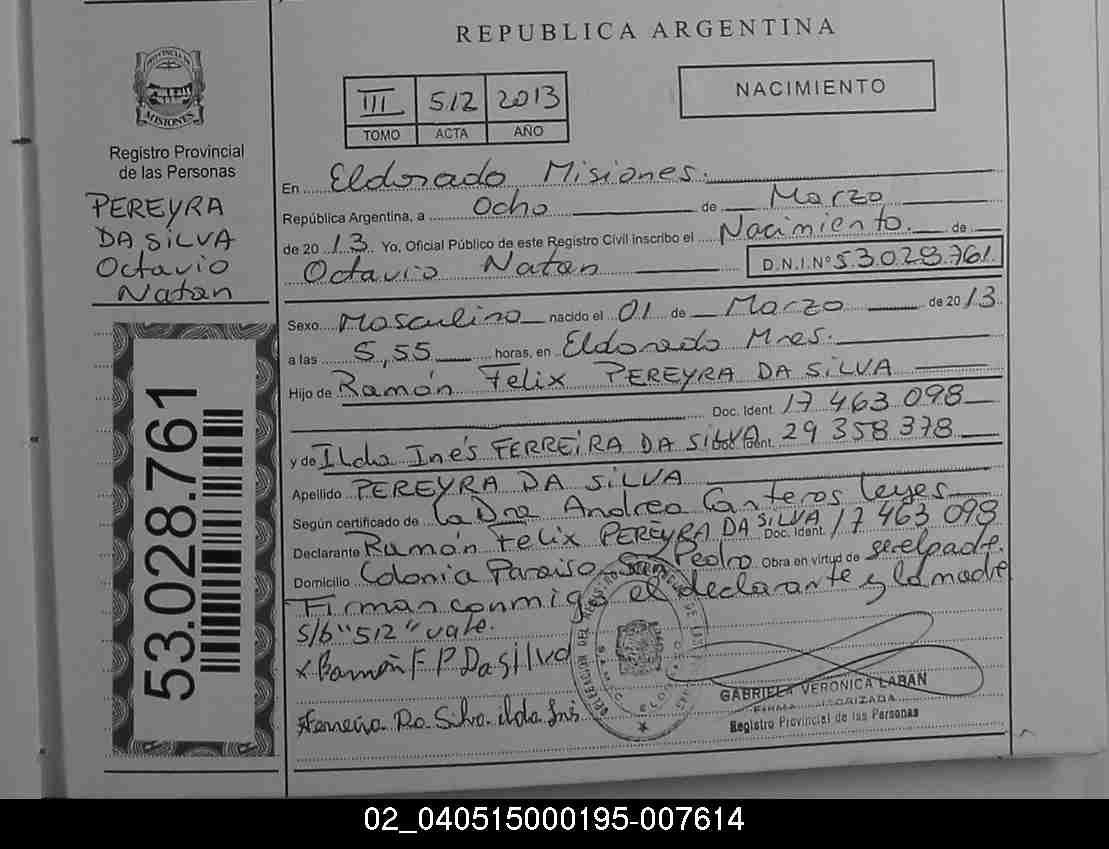 REPUBLICA ARGENTINA
PROVINCIA DE
MISIONES
Registro Provincial
de las Personas
PEREYRA
DA SILVA
Octavio
Natan
53.028.761
III 512 2013
TOMO ACTA AÑO
NACIMIENTO
En Eldorado Misiones.
República Argentina, a Ocho de Marzo
de 2013 Yo, Oficial Público de este Registro Civil inscribo el Nacimiento. de
Octavio Natan D.N.I.Nº 53.028.761.
Sexo Masculino nacido el 01 de Marzo de 2013
a las 5,55 horas, en Eldorado Mnes.
Hijo de Ramón Felix PEREYRA DA SILVA
Doc. Ident. 17 463 098
y de Ilda Inés FERREIRA DA SILVA Doc. Ident. 29 358 378
Apellido PEREYRA DA SILVA
Según certificado de la Dra Andrea Canteros Leyes
Declarante Ramón Felix PEREYRA DA SILVA Doc. Ident. 17 463 098
Domicilio Colonia Paraiso San Pedro Obra en virtud de ser el padre.
Firman conmigo el declarante y la madre
S/b "512" vale.
x Ramón F P Da silva
Ferreira Da Silva ilda Inés
GABRIELA VERONICA LABAN
FIRMA AUTORIZADA
Registro Provincial de las Personas
02_040515000195-007614